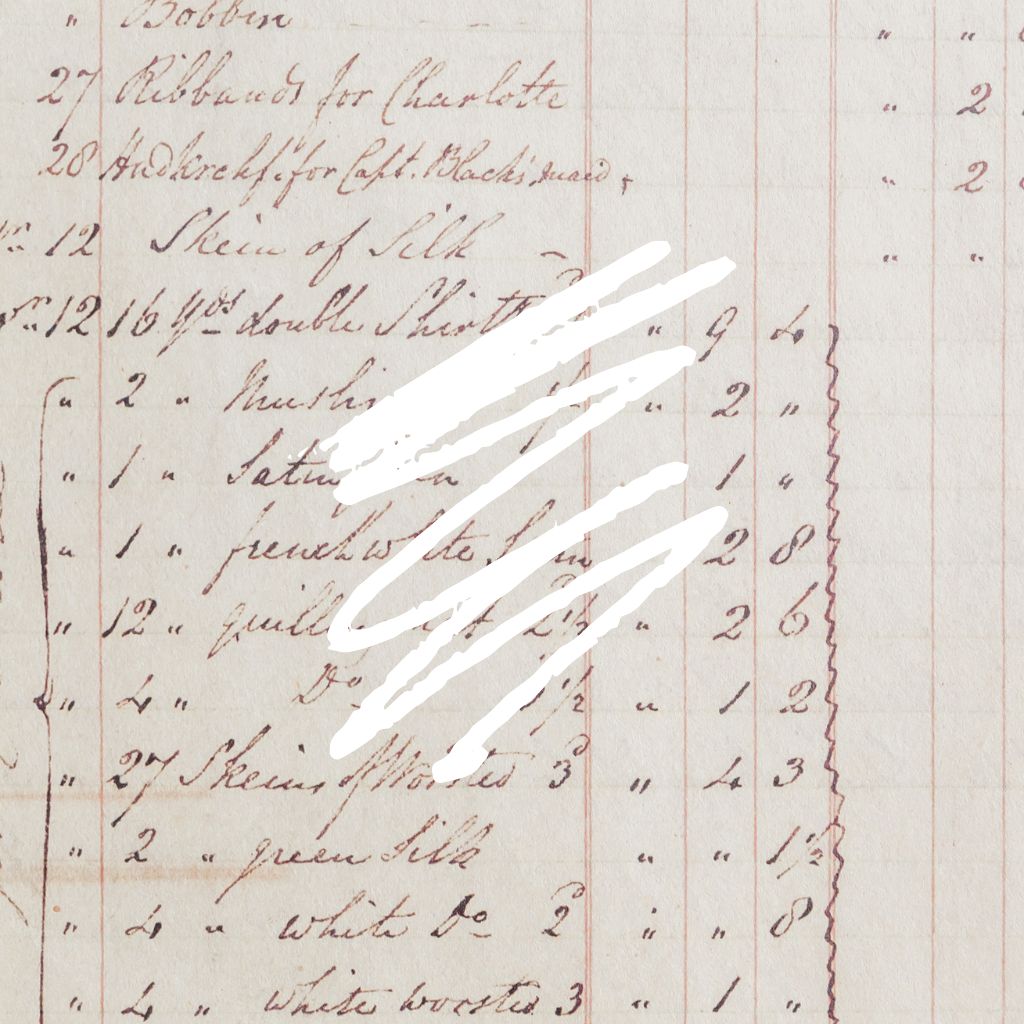 " Bobbin " "
27 Ribbands for Charlotte " 2
28 Handkrchf. for Capt. Black's maid " 2
12 Skein of Silk - " "
" 12 16 Yds double " 9 4
" 2 " 1/ " 2 "
" 1 " 1 "
" 1 " french white 2 8
" 12 " 2½ " 2 6
" 4 " Do 1½ " 1 2
" 27 Skeins of Worsted 3d " 4 3
" 2 " green Silk " " 1½
" 4 " white Do 2d " " 8
" 4 " white worsted 3 " 1 "